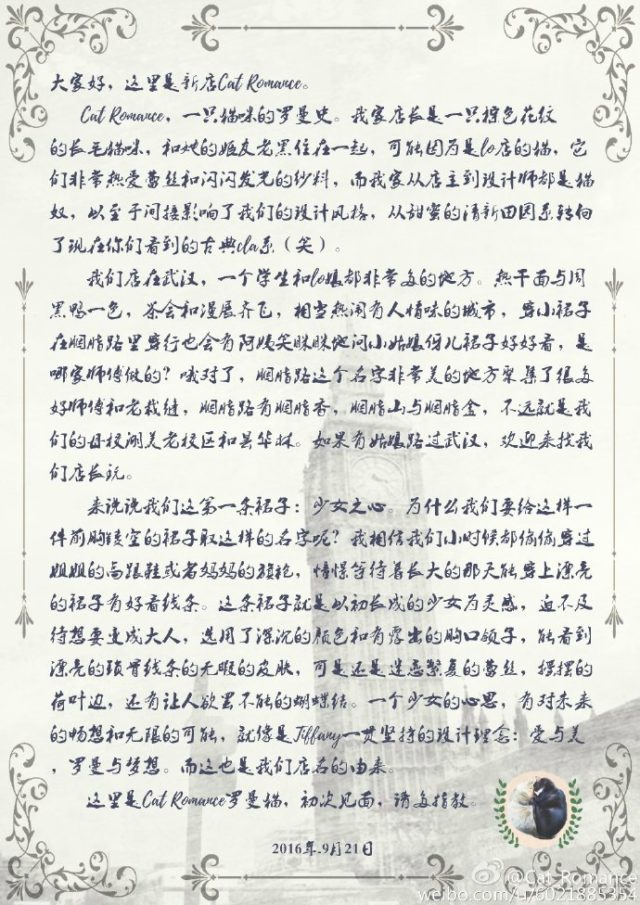 大家好，这里是新店Cat Romance。
Cat Romance，一只猫咪的罗曼史。我家店长是一只棕色花纹
的长毛猫咪，和她的姬友老黑住在一起，可能因为是lo店的猫，它
们非常热爱蕾丝和闪闪发光的纱料，而我家从店主到设计师都是猫
奴，以至于间接影响了我们的设计风格，从甜蜜的清新田园系转向
了现在你们看到的古典cla系（笑）。
我们店在武汉，一个学生和lo娘都非常多的地方。热干面与周
黑鸭一色，茶会和漫展齐飞，相当热闹有人情味的城市，穿小裙子
在胭脂路里穿行也会有阿姨笑眯眯地问小姑娘伢儿裙子好好看，是
哪家师傅做的？哦对了，胭脂路这个名字非常美的地方聚集了很多
好师傅和老裁缝，胭脂路有胭脂香，胭脂山与胭脂盒，不远就是我
们的母校湖美老校区和昙华林。如果有姑娘路过武汉，欢迎来找我
们店长玩。
来说说我们这第一条裙子：少女之心。为什么我们要给这样一
件前胸镂空的裙子取这样的名字呢？我相信我们小时候都偷偷穿过
姐姐的高跟鞋或者妈妈的旗袍，憧憬等待着长大的那天能穿上漂亮
的裙子有好看线条。这条裙子就是以初长成的少女为灵感，迫不及
待想要变成大人，选用了深沉的颜色和有露出的胸口领子，能看到
漂亮的锁骨线条的无暇的皮肤，可是还是迷恋繁复的蕾丝，摆摆的
荷叶边，还有让人欲罢不能的蝴蝶结。一个少女的心思，有对未来
的畅想和无限的可能，就像是Tiffany一贯坚持的设计理念：爱与美
，罗曼与梦想。而这也是我们店名的由来。
这里是Cat Romance罗曼猫，初次见面，请多指教。
2016年.9月21日
@Cat_Romance
weibo.com/u/6021885354